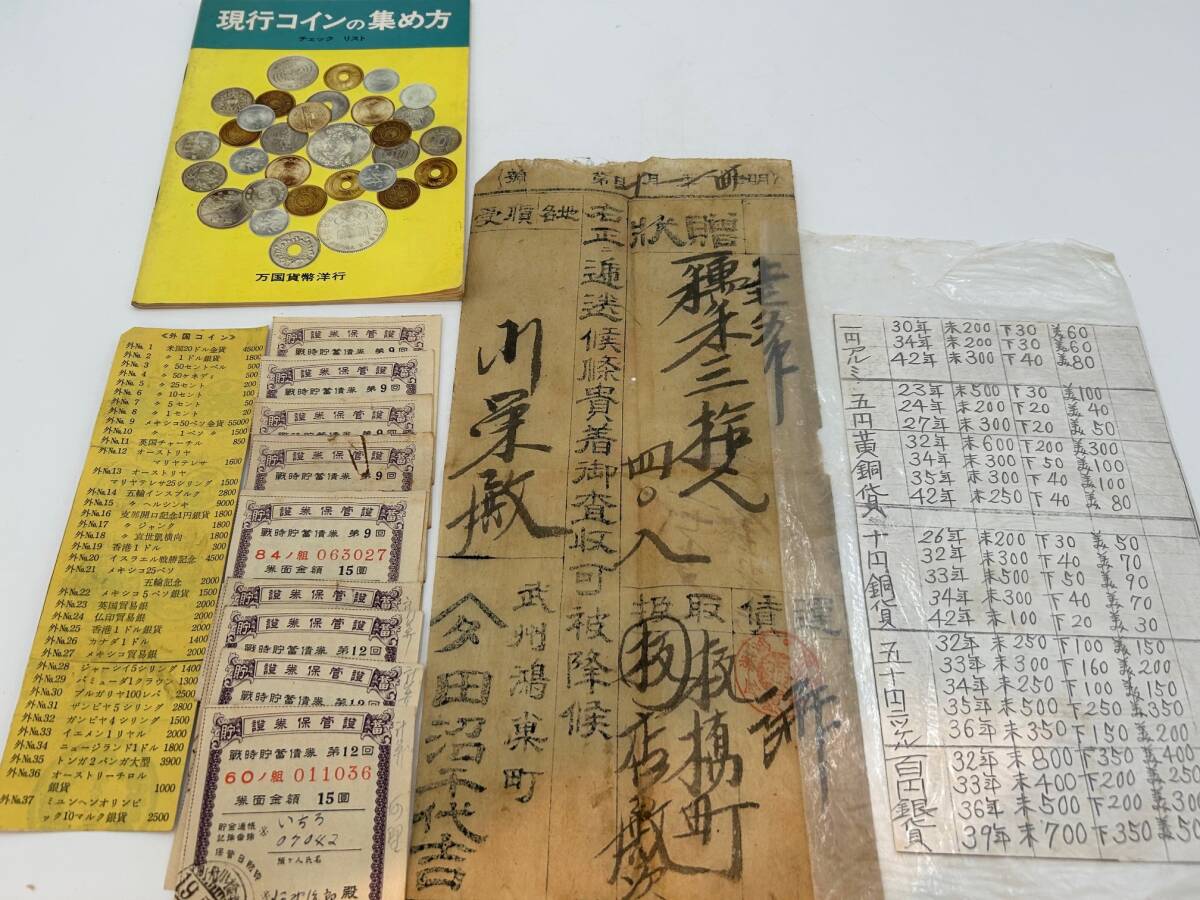 現行コインの集め方
チェック リスト
万国貨幣洋行
≪外国コイン≫
外№ 1 米国20ドル金貨 45000
外№ 2 〃 1ドル銀貨 1800
外№ 3 〃 50セントベル 500
外№ 4 〃 50ケネディ 500
外№ 5 〃 25セント 200
外№ 6 〃 10セント 100
外№ 7 〃 5セント 50
外№ 8 〃 1セント 20
外№ 9 メキシコ50ペソ金貨 55000
外№10 〃 1ペソ 1500
外№11 英国チャーチル 850
外№12 オーストリヤ
マリヤテレサ 1600
外№13 オーストリヤ
マリヤテレサ25シリング 1500
外№14 五輪インスブルク 2800
外№15 〃 ヘルシンキ 9000
外№16 支那開口記念1円銀貨 1800
外№17 〃 ジャンク 1800
外№18 〃 袁世凱横向 1800
外№19 香港1ドル 300
外№20 イスラエル戦勝記念 4500
外№21 メキシコ25ペソ
五輪記念 2000
外№22 メキシコ5ペソ銀貨 1500
外№23 英国貿易銀 2000
外№24 仏印貿易銀 2000
外№25 香港1ドル銀貨 2000
外№26 カナダ1ドル 1400
外№27 メキシコ貿易銀 2000
外№28 ジャーシイ5シリング 1400
外№29 バミューダ1クラウン 1300
外№30 ブルガリヤ100レバ 2500
外№31 ザンビヤ5シリング 2800
外№32 ガンビヤ4シリング 1500
外№33 イエメン1リヤル 2000
外№34 ニュージランド1ドル 1800
外№35 トンガ2パンガ大型 3900
外№36 オーストリーチロル
銀貨 1000
外№37 ミュンヘンオリンピ
ック10マルク銀貨 2500
證券保管證
戦時貯蓄債券 第9回
證券保管證
戦時貯蓄債券 第9回
證券保管證
戦時貯蓄債券 第9回
證券保管證
戦時貯蓄債券 第9回
貯 證券保管證 蓄
戦時貯蓄債券 第9回
84ノ組 063027
券面金額 15圓
證券保管證
證券保管證
戦時貯蓄債券 第12回
證券保管證
戦時貯蓄債券 第12回
貯 證券保管證 蓄
戦時貯蓄債券 第12回
60ノ組 011036
券面金額 15圓
貯金通帳
記號番號
いちろ
07042
保管日附印
預ケ人氏名
殿
19
明 月 日第 號
贈狀
三拾人
四〇入
運賃
取扱
板橋町
扱店
右正ニ逓送候條貴着御査収可被降候
各地領受
川栄殿
武州鴻巣町
田沼千代吉
一円アルミ
30年 未200 下30 美60
34年 未200 下30 美60
42年 未300 下40 美80
五円黄銅貨
23年 未500 下30 美100
24年 未200 下20 美40
27年 未300 下20 美50
32年 未600 下200 美300
34年 未300 下50 美100
35年 未300 下40 美100
42年 未250 下40 美80
十円銅貨
26年 未200 下30 美50
32年 未300 下40 美70
33年 未500 下50 美90
34年 未300 下40 美70
42年 未100 下20 美30
五十円ニッケル
32年 未250 下100 美150
33年 未300 下160 美200
34年 未250 下100 美150
35年 未500 下250 美350
36年 未350 下150 美200
百円銀貨
32年 未800 下350 美400
33年 未400 下200 美250
36年 未500 下200 美300
39年 未700 下350 美50